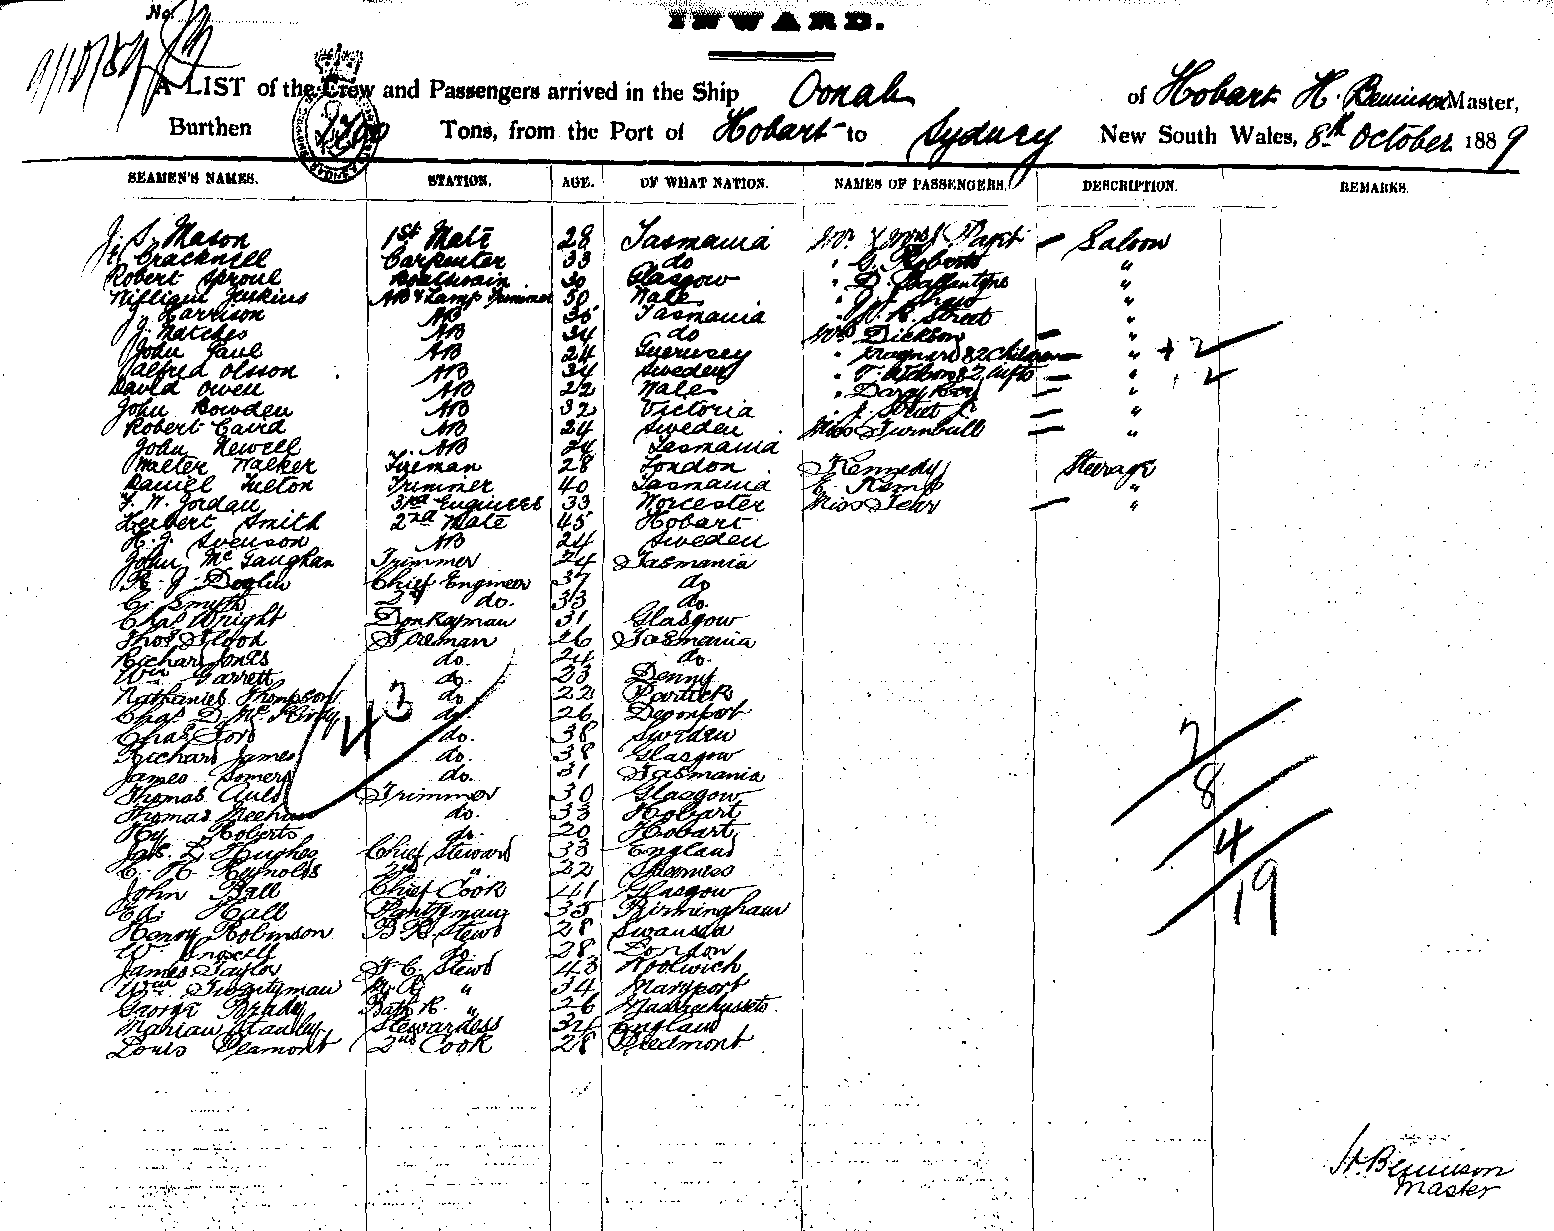 No.
9/10/89
INWARD.
A LIST of the Crew and Passengers arrived in the Ship Oonah of Hobart H. Bennison Master,
Burthen Tons, from the Port of Hobart to Sydney New South Wales, 8th October 1889
SEAMEN'S NAMES. STATION. AGE. OF WHAT NATION. NAMES OF PASSENGERS. DESCRIPTION. REMARKS.
J. S. Mason 1st Mate 28 Tasmania Mr & Mrs Paget — Saloon
Cracknell Carpenter 33 do " G. Roberts "
Robert Sproul Boatswain 30 Glasgow " D. Ballantyne "
William Jenkins AB & Lamp Trimmer 30 Wales "
J. Harrison AB 35 Tasmania Street "
J. Natches AB 34 do Mrs Dickson — "
John Gaul AB 24 Guernsey " & 2 Children — " + 2
Alfred Olsson AB 34 Sweden " & 2 — " 2
David Owen AB 22 Wales " — "
John Bowden AB 32 Victoria " — "
Robert Caird AB 24 Sweden Miss Turnbull — "
John Newell AB 24 Tasmania
Walter Walker Fireman 28 London Kennedy Steerage
Daniel Fulton Trimmer 40 Tasmania E. Kemp "
F. W. Jordan 3rd Engineer 33 Worcester Miss Fehr — "
Herbert Smith 2nd Mate 45 Hobart
H. J. Svenson AB 24 Sweden
John McGaughan Trimmer 24 Tasmania
R. J. Chief Engineer 37 do
C. Smyth 2nd do. 33 do.
Chas Wright Donkeyman 31 Glasgow
Thos Flood Fireman 26 Tasmania
Richard Jones do. 24 do.
Wm Garrett do. 23 Denny
Nathaniel Thompson do. 22 Partick
Chas D. do. 26 Devonport
Chas Ford do. 38 Sweden
Richard James do. 38 Glasgow
James Somers do. 31 Tasmania
Thomas Trimmer 30 Glasgow
Thomas Meehan do. 33 Hobart
Hy. Roberts do. 20 Hobart
Jas. L. Hughes Chief Steward 38 England
C. H. Reynolds 2nd " 22 Sheerness
John Ball Chief Cook 41 Glasgow
Ed. Hall Pantryman 35 Birmingham
Henry Robinson B R Stewd 28 Swansea
W. do 28 London
James Taylor F. C. Stewd 43 Woolwich
Wm Twentyman " 34 Maryport
George Brady Bath R. " 26 Massachussets
Marian Stanley Stewardess 34 England
Louis Deamont 2nd Cook 28 Piedmont
43
7
8
4
19
H. Bennison
Master